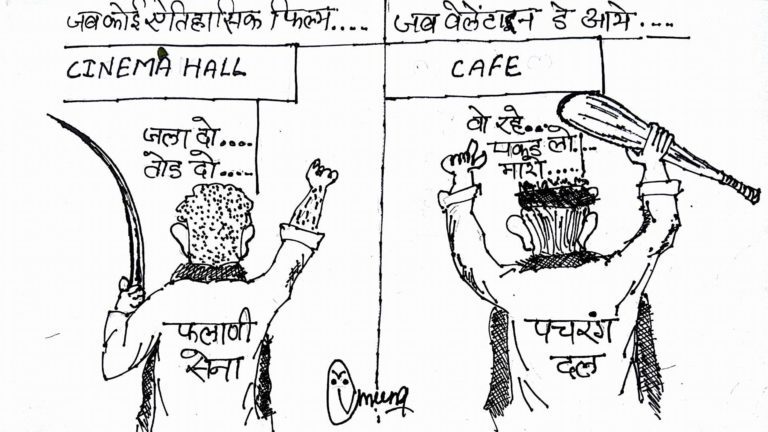 जब कोई ऐतिहासिक फिल्म.....
CINEMA HALL
जला दो....
तोड दो.....
फलाणी
सेना
जब वेलेंटाइन डे आये.....
CAFE
वो रहे...
पकड़ लो...
मारो.....
पचरंग
दल